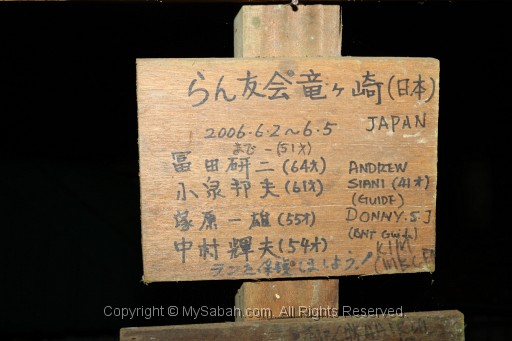 らん友会竜ヶ崎(日本)
JAPAN
2006.6.2～6.5
(51才)
冨田研二(64才)
小泉邦夫(61才)
塚原一雄(55才)
中村輝夫(54才)
ランを保護しましょう!
ANDREW
SIANI (41才)
(GUIDE)
DONNY.S J
KIM
Copyright © MySabah.com. All Rights Reserved.